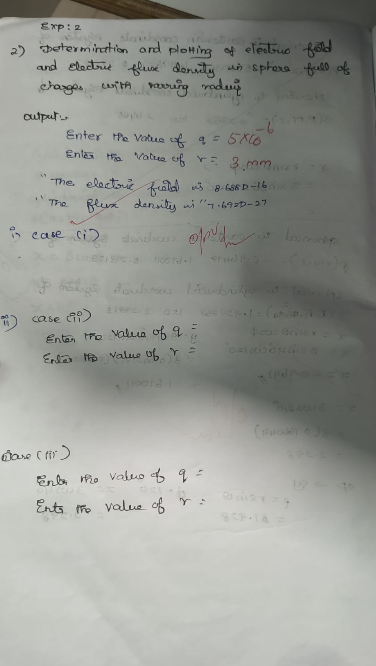 Exp: 2
2) Determination and plotting of electric field
and electric flux density in sphere full of
charges with varring radius
output:-
Enter the value of q = 5x10^-6
Enter the value of r = 3 mm
"The electric field is 8.688D-16
"The flux density is "7.692D-27
i) case (i)
ii) case (ii)
Enter the value of q =
Enter the value of r =
case (iii)
Enter the value of q =
Enter the value of r =